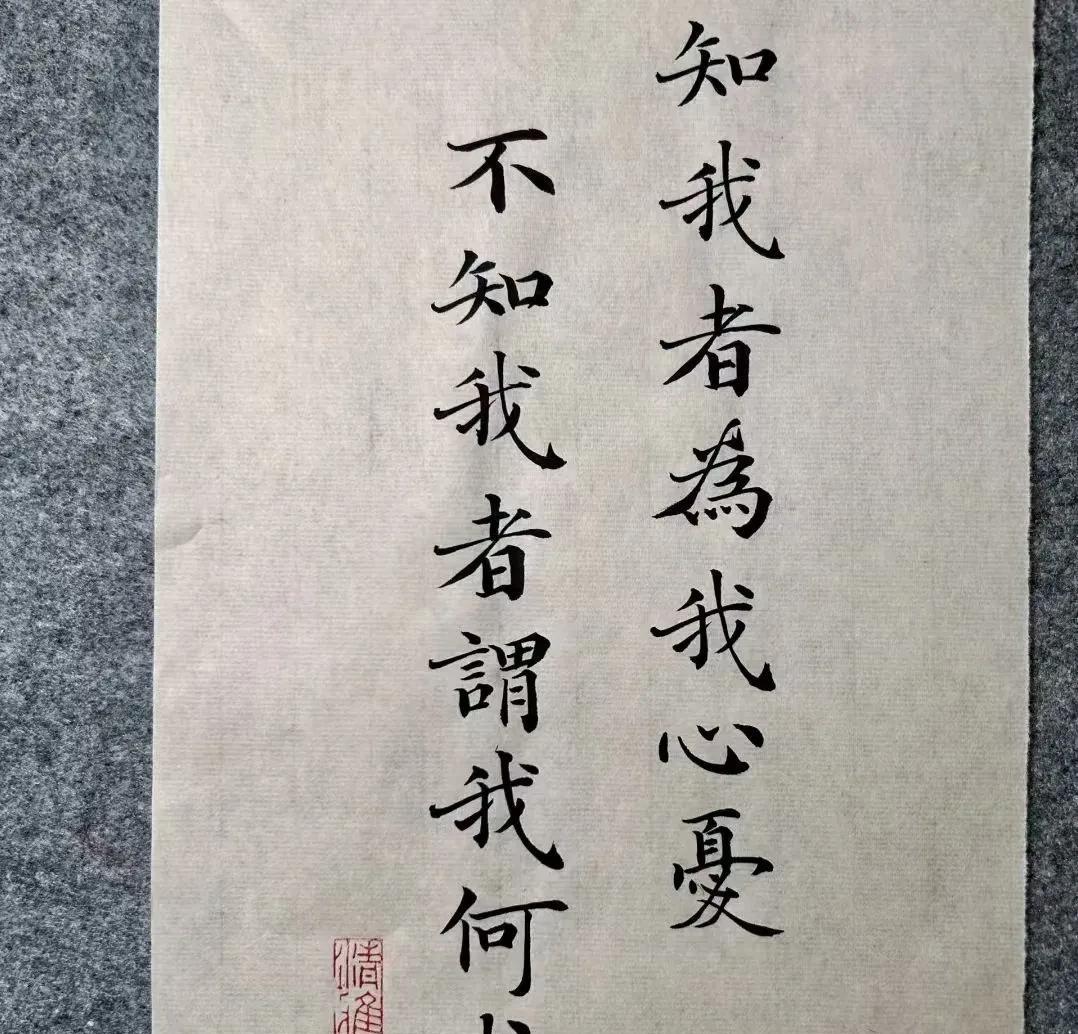 知我者為我心憂
不知我者謂我何